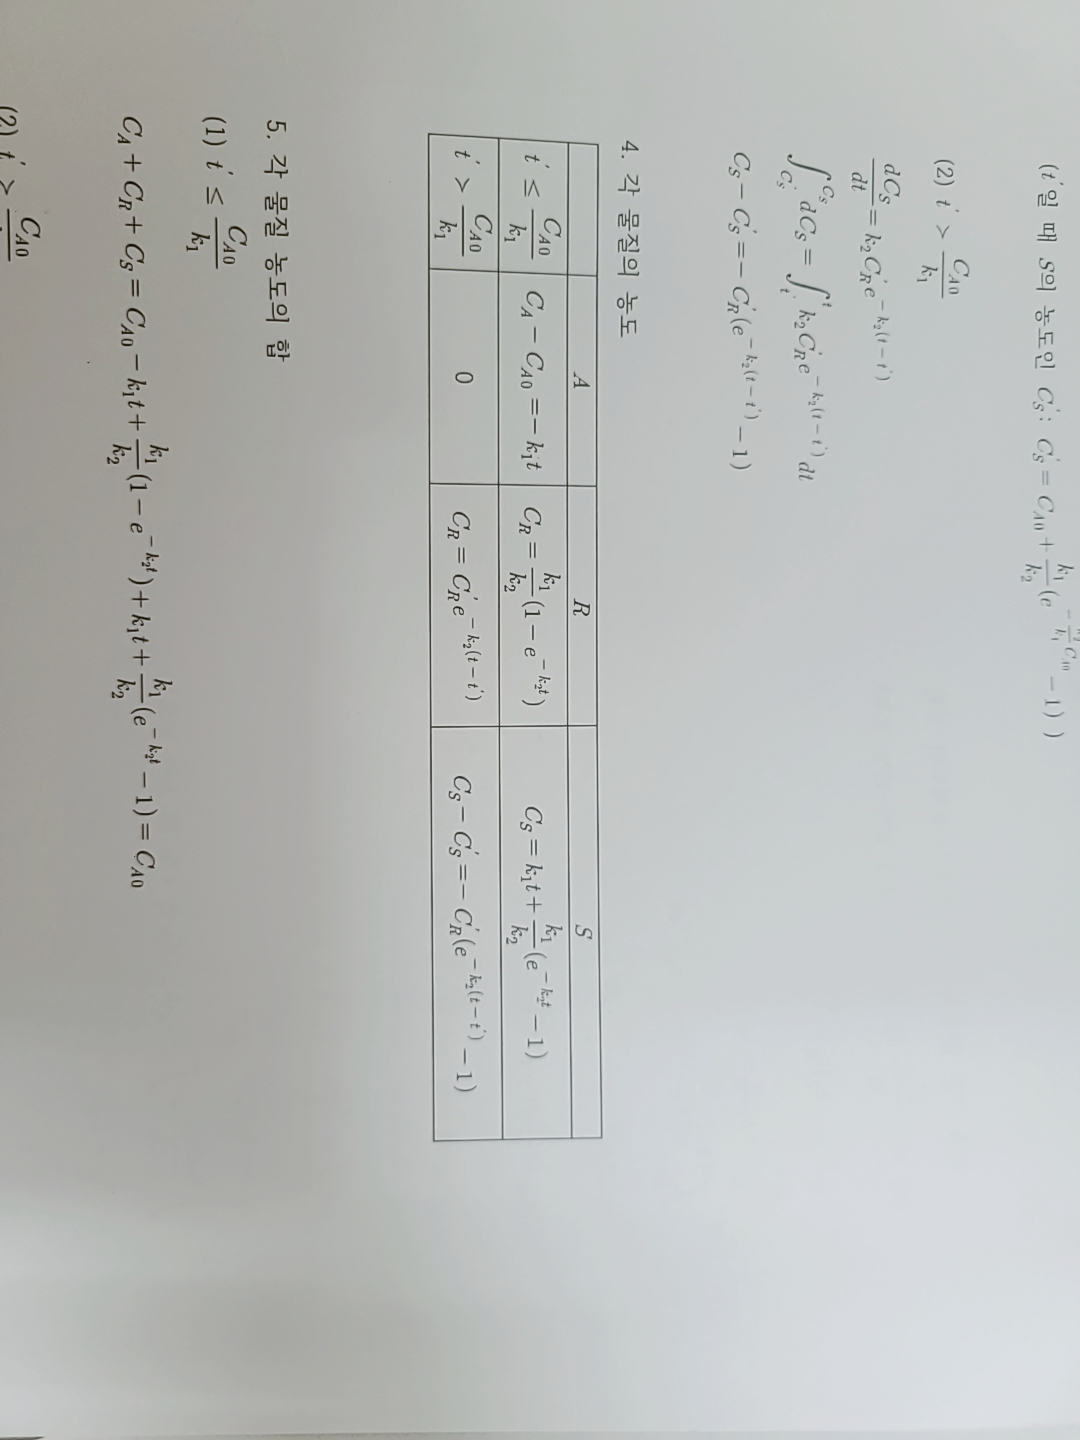 (t'일 때 S의 농도인 C_S': C_S' = C_A0 + k₁/k₂(e^(-k₂/k₁ C_A0) - 1) )
(2) t' > C_A0/k₁
dC_S/dt = k₂C_R'e^(-k₂(t-t'))
∫_{C_S'}^{C_S} dC_S = ∫_{t'}^{t} k₂C_R'e^(-k₂(t-t')) dt
C_S - C_S' = -C_R'(e^(-k₂(t-t')) - 1)
4. 각 물질의 농도
A R S
t' ≤ C_A0/k₁ C_A - C_A0 = -k₁t C_R = k₁/k₂(1 - e^(-k₂t)) C_S = k₁t + k₁/k₂(e^(-k₂t) - 1)
t' > C_A0/k₁ 0 C_R = C_R'e^(-k₂(t-t')) C_S - C_S' = -C_R'(e^(-k₂(t-t')) - 1)
5. 각 물질 농도의 합
(1) t' ≤ C_A0/k₁
C_A + C_R + C_S = C_A0 - k₁t + k₁/k₂(1 - e^(-k₂t)) + k₁t + k₁/k₂(e^(-k₂t) - 1) = C_A0
(2) t' > C_A0